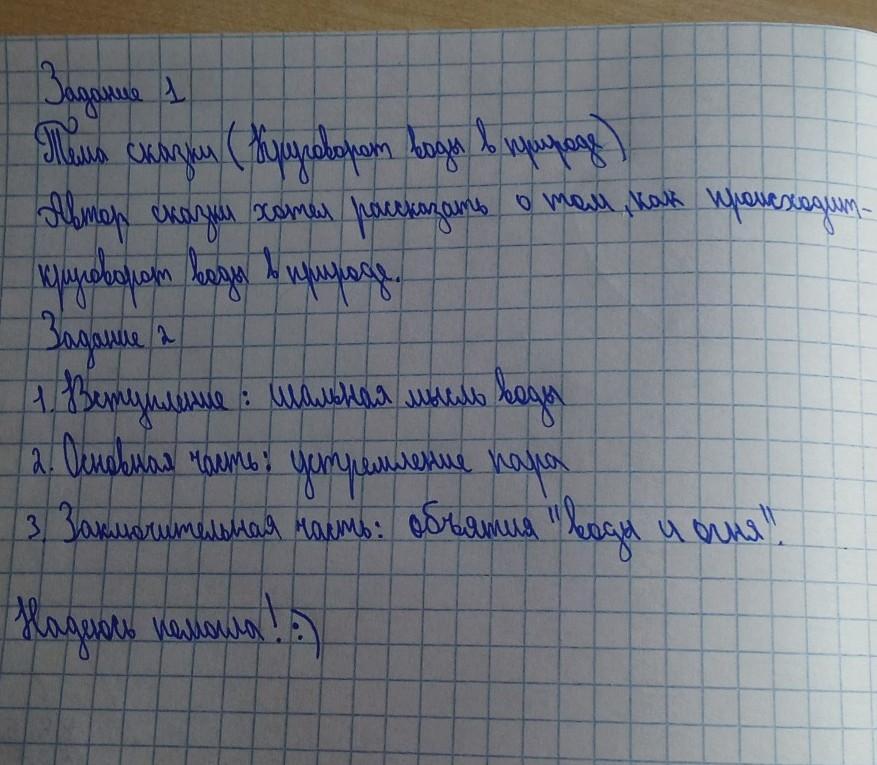 Задание 1
Тема сказки (Круговорот воды в природе)
Автор сказки хотел рассказать о том, как происходит
круговорот воды в природе.
Задание 2
1. Вступление: шальная мысль воды
2. Основная часть: устремление пара
3. Заключительная часть: объятия "воды и огня".
Надеюсь помогла! :)